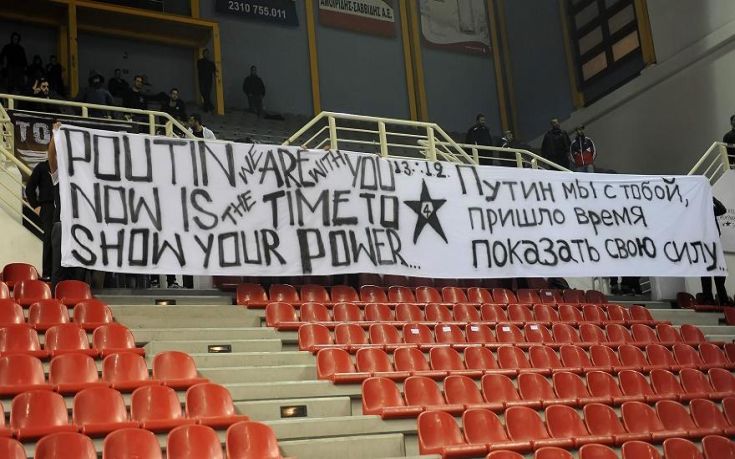 2310 755.011
ΑΜΟΙΡΙΔΗΣ-ΣΑΒΒΙΔΗΣ Α.Ε.
POUTIN WE ARE WITH YOU
NOW IS THE TIME TO
SHOW YOUR POWER...
13.:.12.
4
ПУТИН МЫ С ТОБОЙ,
ПРИШЛО ВРЕМЯ
ПОКАЗАТЬ СВОЮ СИЛУ...